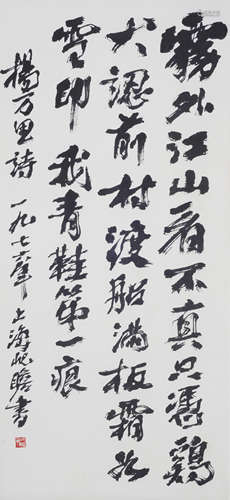 霧外江山看不真只憑鷄
犬認前村渡船滿板霜如
雪印我青鞋第一痕
楊万里詩 一九七六年 上海 瞻書